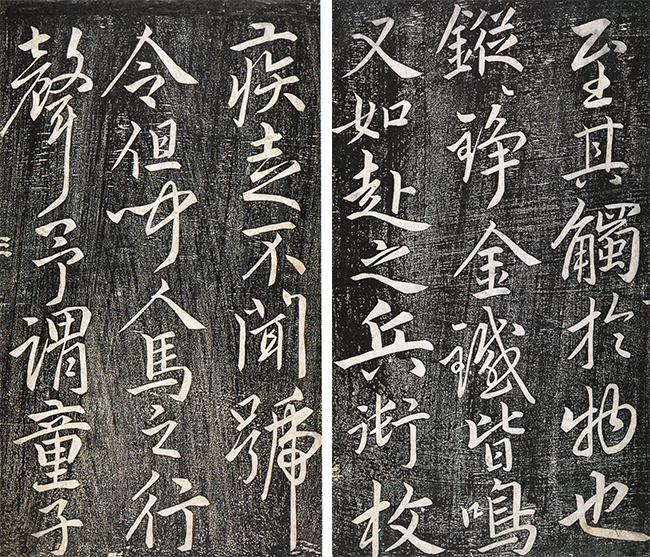 至其觸於物也
鏦〻錚金鐵皆鳴
又如赴之兵銜枚
疾走不聞號
令但聞人馬之行
聲予謂童子